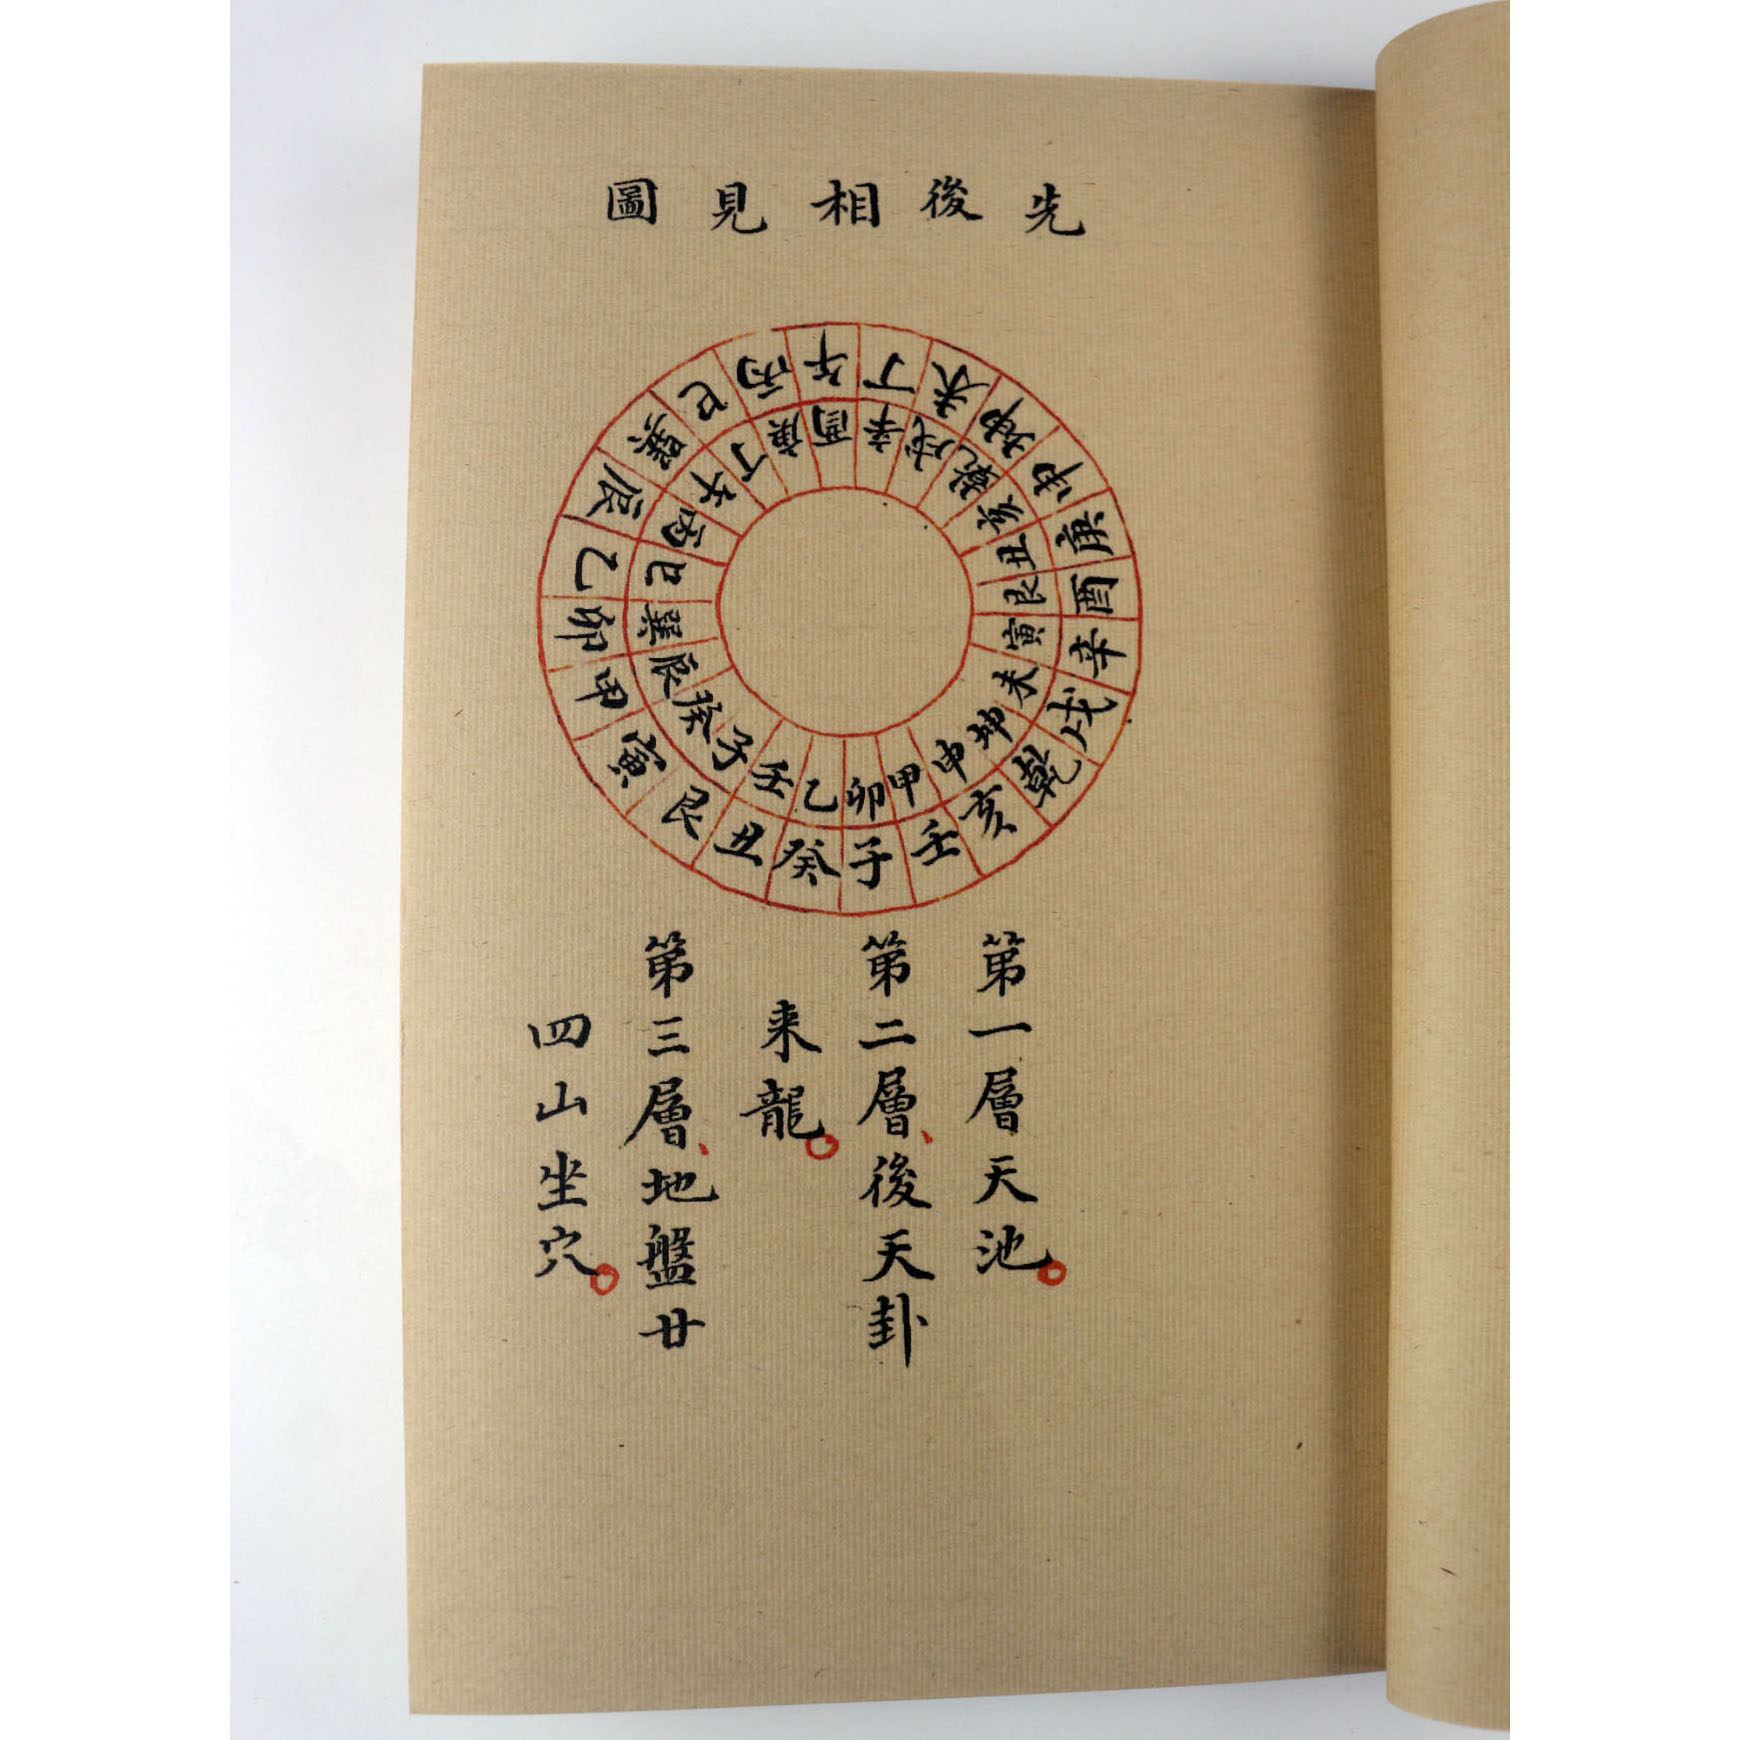 先後相見圖
午丁未坤申庚酉辛戌乾亥壬子癸丑艮寅甲卯乙辰巽巳丙
酉辛戌乾亥丑艮寅未坤申甲卯乙壬子癸辰巽巳丙午丁庚
第一層天池
第二層、後天卦
来龍
第三層、地盤廿
四山坐穴